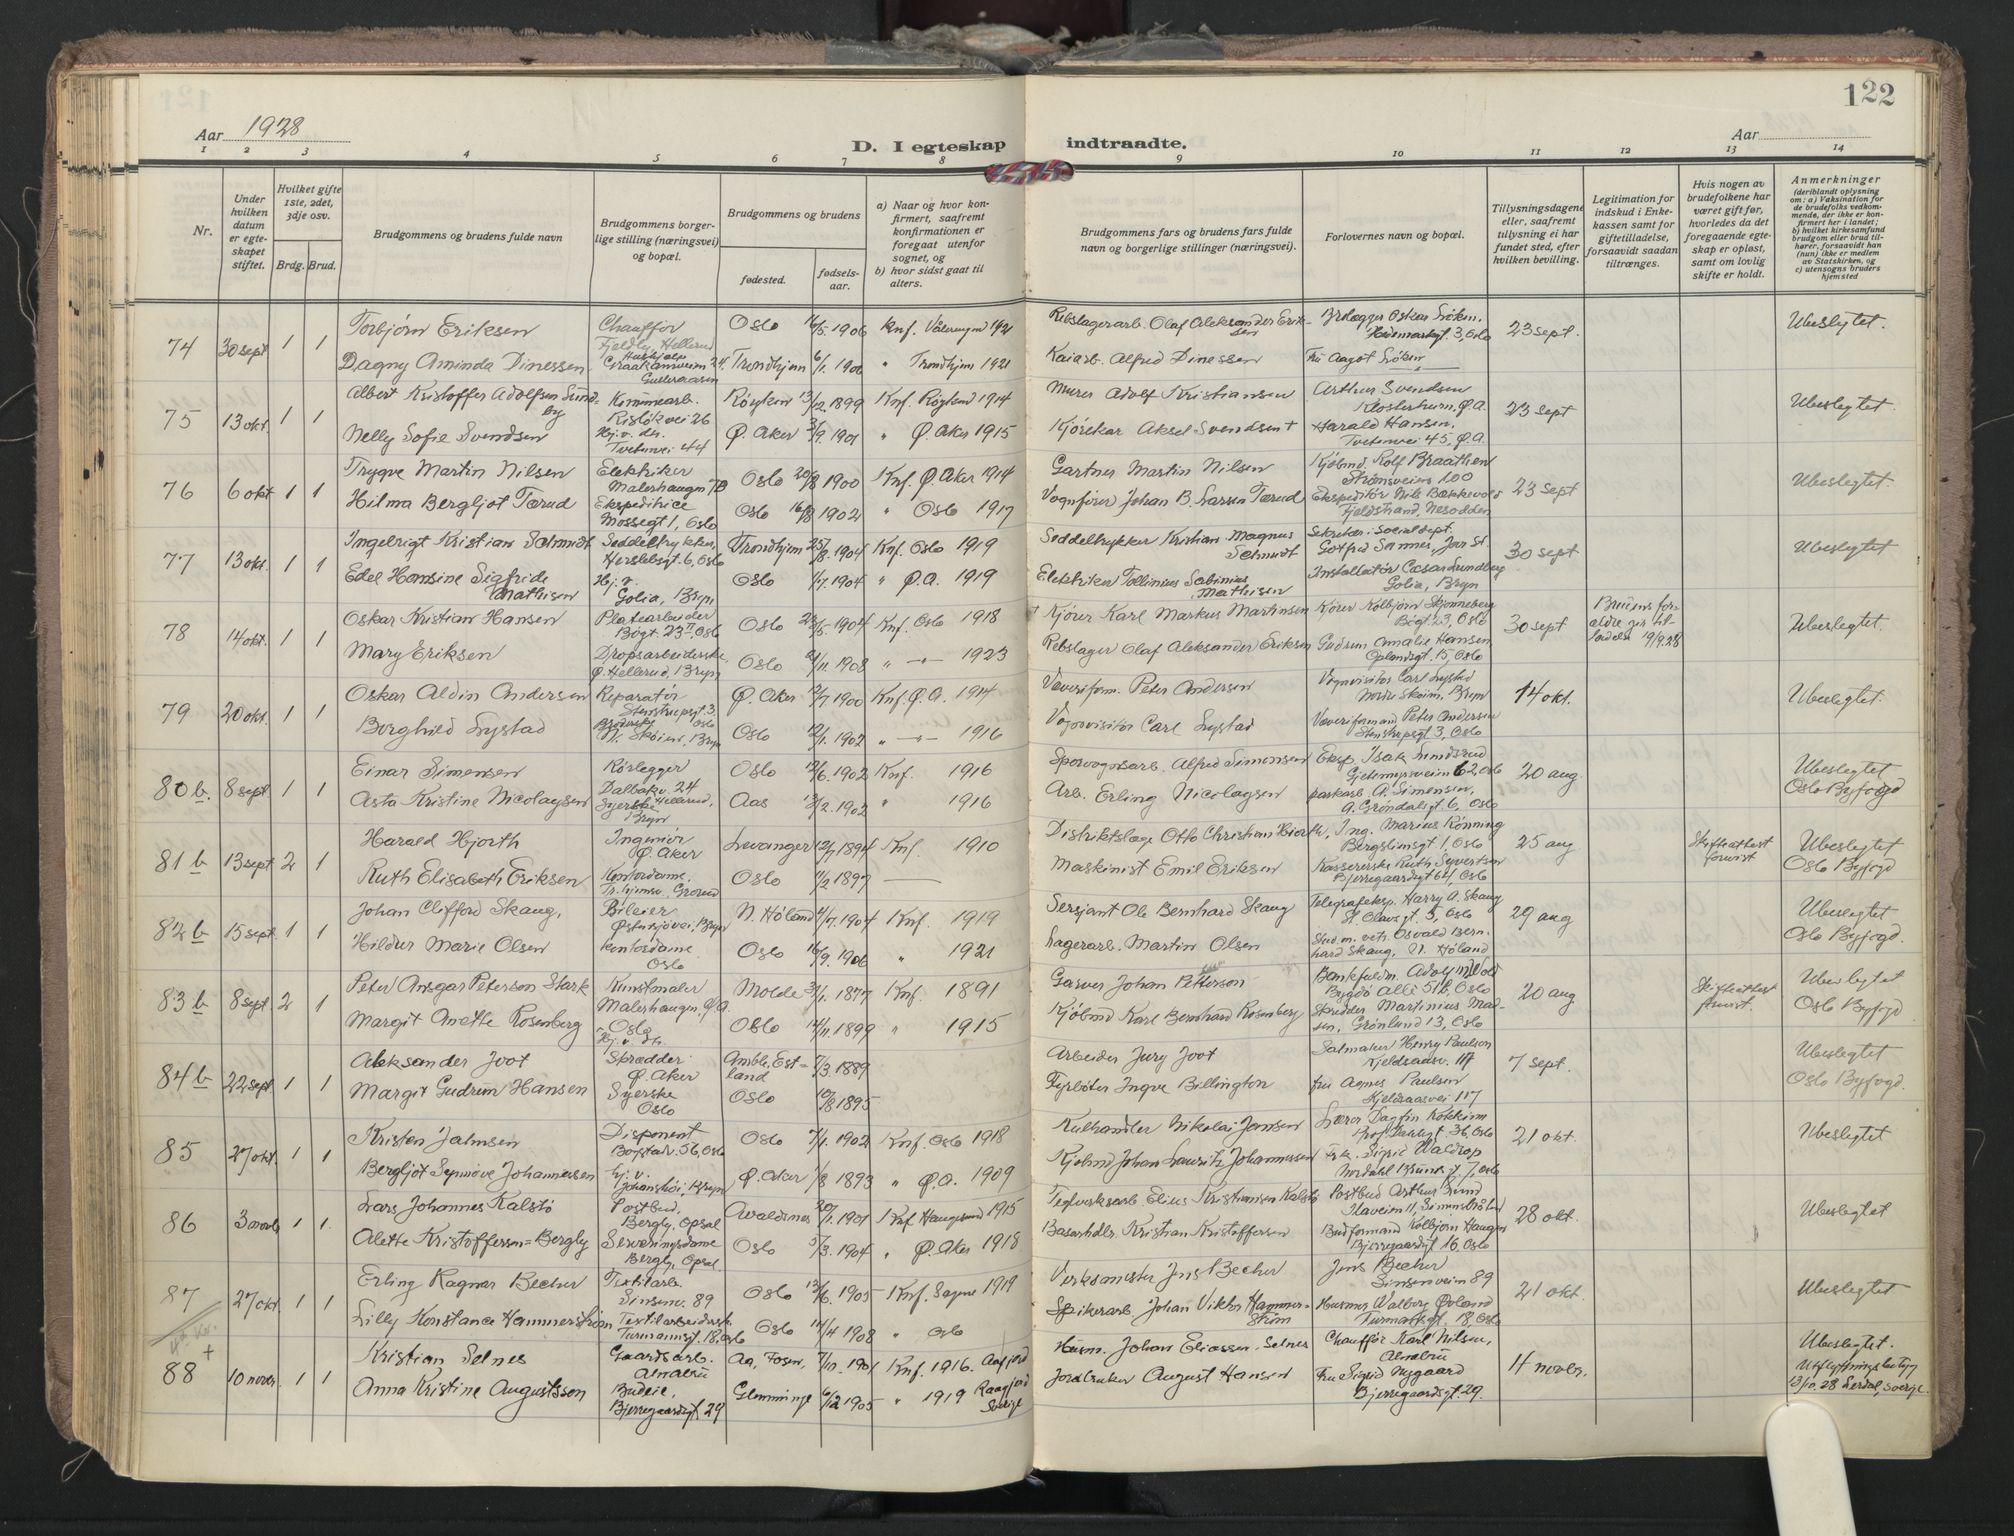 122
Aar 1928
Aar
D. I egteskap indtraadte.
1 2 3 4 5 6 7 8 9 10 11 12 13 14
Nr.
Under hvilken datum er egteskapet stiftet.
Hvilket gifte 1ste, 2det, 3dje osv.
Brdg. Brud.
Brudgommens og brudens fulde navn
Brudgommens borgerlige stilling (næringsvei) og bopæl.
Brudgommens og brudens
fødested.
fødselsaar.
a) Naar og hvor konfirmert, saafremt konfirmationen er foregaat utenfor sognet, og
b) hvor sidst gaat til alters.
Brudgommens fars og brudens fars fulde navn og borgerlige stillinger (næringsvei).
Forlovernes navn og bopæl.
Tillysningsdagene eller, saafremt tillysning ei har fundet sted, efter hvilken bevilling.
Legitimation for indskud i Enkekassen samt for giftetilladelse, forsaavidt saadan tiltrænges.
Hvis nogen av brudefolkene har været gift før, hvorledes da det foregaaende egteskap er opløst, samt om lovlig skifte er holdt.
Anmerkninger
(deriblandt oplysning om: a) Vaksination for de brudefolks vedkommende, der ikke er konfirmert her i landet; b) hvilket kirkesamfund brudgom eller brud tilhører, forsaavidt han (hun) ikke er medlem av Statskirken, og c) utensogns bruders hjemsted
74 30 sept 1 1 Torbjørn Eriksen Chauffør Fjeldly, Hellerud Oslo 16/5 1906 Knf. Vålerengen 1921 Rebslagerarb. Olaf Aleksander Eriksen Oskar 3, Oslo 23 sept. Ubeslegtet.
Dagny Aminda Dinessen Hushjelp Trondhjem 6/1 1900 " Trondhjem 1921 Kaiarb. Alfred Dinessen Fru Aagot
75 13 okt. 1 1 Albert Kristoffer Adolfsen Sundby Kommunearb. Risløkvei 26 Røyken 13/12 1899 Knf. Røyken 1914 Murer Adolf Kristiansen Arthur Svendsen Klosterheim, Ø.A. 23 sept Ubeslegtet.
Nelly Sofie Svendsen Hj. v. do. Tvetenvei 44 Ø. Aker 3/9 1901 " Ø. Aker 1915 Kjørekar Aksel Svendsen + Harald Hansen, Tvetenvei 45, Ø.A.
76 6 okt 1 1 Trygve Martin Nilsen Elektriker Malerhaugen Oslo 20/8 1900 Knf. Ø. Aker 1914 Gartner Martin Nilsen Kjøbmd. Rolf Braathen Strømsveien 100 23 sept Ubeslegtet.
Hilma Bergljot Tærud Ekspeditrice Mossegt 1, Oslo Oslo 16/8 1902 " Oslo 1917 Vognfører Johan B. Larsen Tærud Ekspeditør Nils Bakkevold Fjeldstrand, Nesodden
77 13 okt. 1 1 Ingebrigt Kristian Schmidt Seddeltrykker, Herslebsgt 6, Oslo Trondhjem 25/8 1904 Knf. Oslo 1919 Seddeltrykker Kristian Magnus Schmidt Sekretær i Socialdept. Gotfred 30 sept Ubeslegtet
Edel Hansine Sigfride Mathisen Hj. v. Golia, Bryn Oslo 1/7 1904 " Ø.A. 1919 Elektriker Tollinius Sabinius Mathisen Installatør Cæsar Lundberg Golia, Bryn
78 14 okt. 1 1 Oskar Kristian Hansen Platearbeider Bøgt. 23 Oslo Oslo 23/5 1904 Knf. Oslo 1918 + Kjører Karl Markus Martinsen Kører Kolbjørn Skjønneberg Bøgt 23, Oslo 30 sept Brudens forældre gir tilladelse 19/9.28 Ubeslegtet
Mary Eriksen Dropsarbeiderske, Ø. Hellerud, Bryn Oslo 2/11 1908 " — " — 1923 Rebslager Olaf Aleksander Eriksen Gudrun Amalie Hansen Oplandsgt. 15, Oslo
79 20 okt. 1 1 Oskar Aldin Andersen Reparatør Stenstrupsgt. 3 Oslo Ø. Aker 2/7 1900 Knf. Ø.A. 1914 Væveriform. Peter Andersen Vognvisitør Carl Lystad Nordre Skøien, Bryn 14 okt. Ubeslegtet.
Borghild Lystad N. Skøien, Bryn Oslo 12/1 1902 " — " — 1916 Vognvisitør Carl Lystad Væveriformand Peter Andersen Stenstrupsgt 3, Oslo
80 b. 8 sept. 1 1 Einar Simensen Rørlegger Dalbakv. 24 Oslo 12/6 1902 Knf. 1916 Sporvognsarb. Alfred Simensen Eksp. Isak Gjetemyrsveien 62, Oslo 20 aug. Ubeslegtet Oslo Byfogd
Asta Kristine Nicolaysen Syerske Hellerud, Bryn Aas 13/2 1902 " 1916 Arb. Erling Nicolaysen parkarb. A. Simensen, A. Grøndalsgt. 6, Oslo
81 b 13 sept 2 1 Harald Hjorth Ingeniør Ø. Aker Levanger 12/7 1894 Knf. 1910 Distriktslæge Otto Christian Hiorth, Ing. Marius Rønning Bergslinsgt 1, Oslo 25 aug Skifteattest forevist Ubeslegtet Oslo Byfogd
Ruth Elisabeth Eriksen Kontordame, Grorud Oslo 11/2 1897 — Maskinist Emil Eriksen Kassererske Ruth Syvertsen Bjerregaardsgt 64, Oslo
82 b 15 sept. 1 1 Johan Clifford Skaug, Bileier Østensjøvei, Bryn N. Høland 4/7 1904 Knf. 1919 Sersjant Ole Bernhard Skaug Telegrafeksp. Harry A. Skaug St. Olavsgt. 3, Oslo 29 aug Ubeslegtet Oslo Byfogd.
Hildur Marie Olsen kontordame Oslo Oslo 16/9 1906 " 1921 Lagerarb. Martin Olsen Stud. m. vetr. Osvald Bernhard Skaug, N. Høland
83 b 8 sept. 2 1 Peter Ansgar Peterson Stark Kunstmaler Malerhaugen, Ø.A. Molde 31/1 1877 Knf. 1891 Garver Johan Petterson Bankfuldm. Adolf Wold Bygdø Allé 51b, Oslo 20 aug Skifteattest forevist. Ubeslegtet Oslo Byfogd
Margit Anette Rosenberg Oslo Oslo 14/11 1899 " 1915 Kjøbmd Karl Bernhard Rosenberg Skrædder Martinius Madsen, Grønland 13, Oslo
84 b 22 sept. 1 1 Aleksander Joot Skrædder Ø. Aker Estland 7/3 1889 Arbeider Jury Joot Salmaker Henry Paulson Kjeldsaasv. 117 7 sept. Ubeslegtet Oslo Byfogd.
Margit Gudrun Hansen Syerske Oslo Oslo 10/8 1895 Fyrbøter Ingve Billington fru Agnes Paulsen Kjeldsaasvei 117
85 27 okt. 1 1 Kristen Jahnsen Disponent Bogstadv. 56, Oslo Oslo 7/1 1902 Knf. Oslo 1918 Kulhandler Nikolai Jansen Lærer Dagfin 36, Oslo 21 okt. Ubeslegtet
Bergljot Synnøve Johannessen hj. v. Bryn Ø. Aker 1/8 1893 " Ø.A. 1909 Kjøbmd Johan Lauritz Johannessen Frk. Sigrid Waldrop Nordahl Brunsgt 7, Oslo
86 3 novb 1 1. Lars Johannes Kalstø Postbud. Bergly, Opsal Avaldsnes 20/1 1901 Knf Haugesund 1915 Teglverksarb. Elius Kristiansen Kalstø Postbud Arthur Lund 28 okt. Ubeslegtet
Alette Kristoffersen=Bergly Serveringsdame Bergly, Opsal Oslo 5/3 1904 " Ø. Aker 1918 Basarhdlr. Kristian Kristoffersen Budformand Kolbjørn Haugen Bjerregaardsgt 16, Oslo
87 27 okt. 1 1 Erling Ragnar Becher Textilarb. Sinsenv. 89 Oslo 13/6 1905 Knf. Sagene 1919 Verksmester Jens Becher Jens Becher Sinsenveien 89 21 okt. Ubeslegtet
Lilly Konstance Hammerstrøm Textilarbeiderske Turmannsgt. 18, Oslo Oslo 14/4 1908 " Oslo Spikerarb Johan Viktor Hammerstrøm Husmor Walborg Øvland 18, Oslo
+
88 10 novbr. 1 1 Kristian Selnes Gaardsarb. Alnabru Aa, Fosen, 7/10 1901 Knf. 1916. Aafjord Husm. Johan Eliassen Selnes Chauffør Karl Nilsen, Alnabru 4 novbr. Ubeslegtet.
Anna Kristine Augustsson Budeie, Bjerregaardsgt 29 Glemminge 6/12 1905 " 1919 Sverige Jordbruker August Hansen Fru Sigrid Nygaard Bjerregaardsgt. 29. 13/10.28 Sverige.